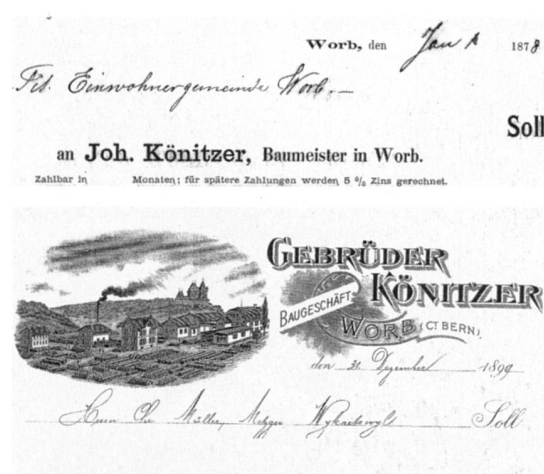 Worb, den Jan 1 1878
Einwohnergemeinde Worb.—
Soll
an Joh. Könitzer, Baumeister in Worb.
Zahlbar in Monaten; für spätere Zahlungen werden 5 % Zins gerechnet.
GEBRÜDER
KÖNITZER
BAUGESCHÄFT
WORB (CT BERN)
den 31. Dezember 1899
Herrn Müller, Metzger Soll